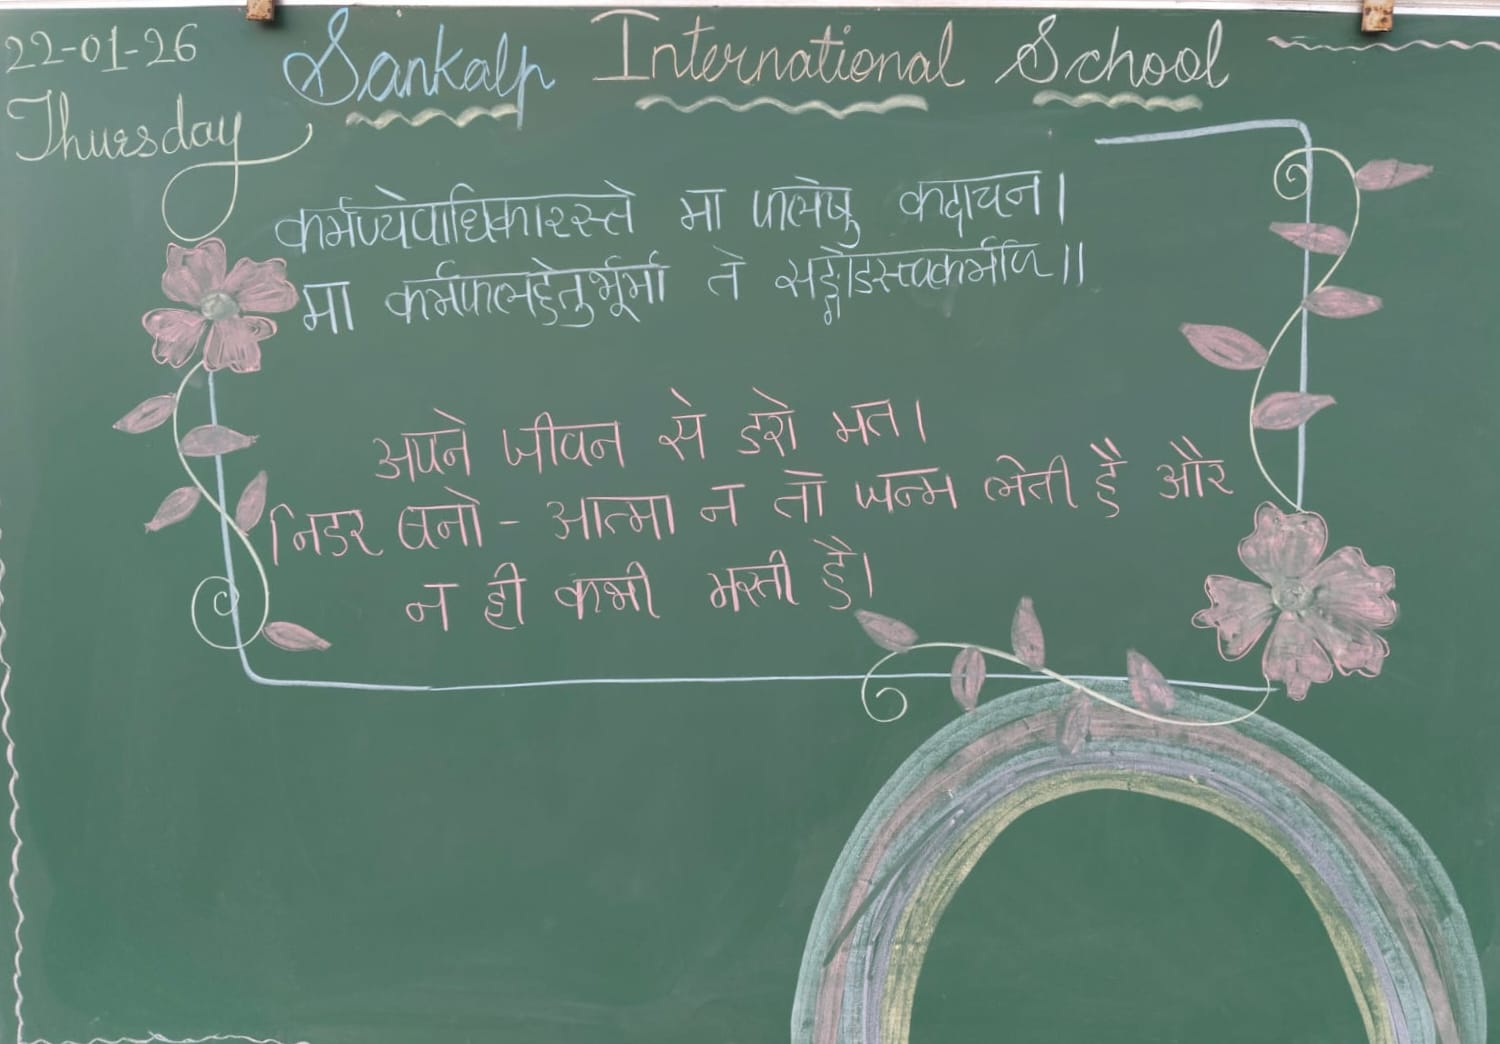 22-01-26
Thursday
Sankalp International School
कर्मण्येवाधिकारस्ते मा फलेषु कदाचन।
मा कर्मफलहेतुर्भूर्मा ते सङ्गोडस्त्वकर्मणि॥
अपने जीवन से डरो मत।
निडर बनो - आत्मा न तो जन्म लेती है और
न ही कभी मरती है।